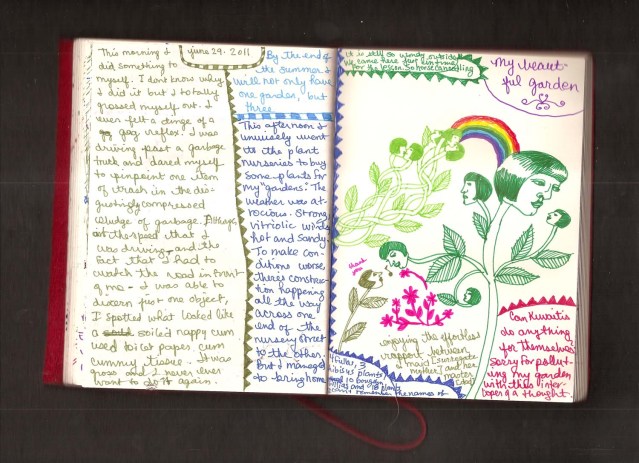 This morning I
did something to
myself. I dont know why
I did it but I totally
grossed myself out. I
even felt a tinge of a
gag reflex. I was
driving past a garbage
truck and dared myself
to pinpoint one item
of trash in the dis-
gustingly compressed
sludge of garbage. Although,
at the speed that I
was driving and the
fact that I had to
watch the road in front
of me - I was able to
discern just one object,
I spotted what looked like
a soiled nappy cum
used toilet paper cum
cummy tissue. It was
gross and I never ever
want to do it again.
june 29. 2011
By the end of
the summer I
will not only have
one garden, but
three.
This afternoon I
unwisely went
to the plant
nurseries to buy
some plants for
my "gardens". The
weather was at-
rocious. Strong
vitriolic winds
hot and sandy.
To make con-
ditions worse,
theres construc-
tion happening
all the way
across one
end of the
nursery street
to the other.
But I managed
to bring home
It is still so windy outside
We came here for
For the lesson. So horse
my beaut-
ful garden
thank
you
enjoying the effortless
rapport between
a maid, surrogate
mother, and her
master
(dad)
4 Futus, 3
hibiscus plants
and 10 bougan-
villias and 18 plants
remember the names of
Can Kuwaitis
do anything
for themselves?
Sorry for pollut-
ing my garden
with this inter-
loper of a thought.